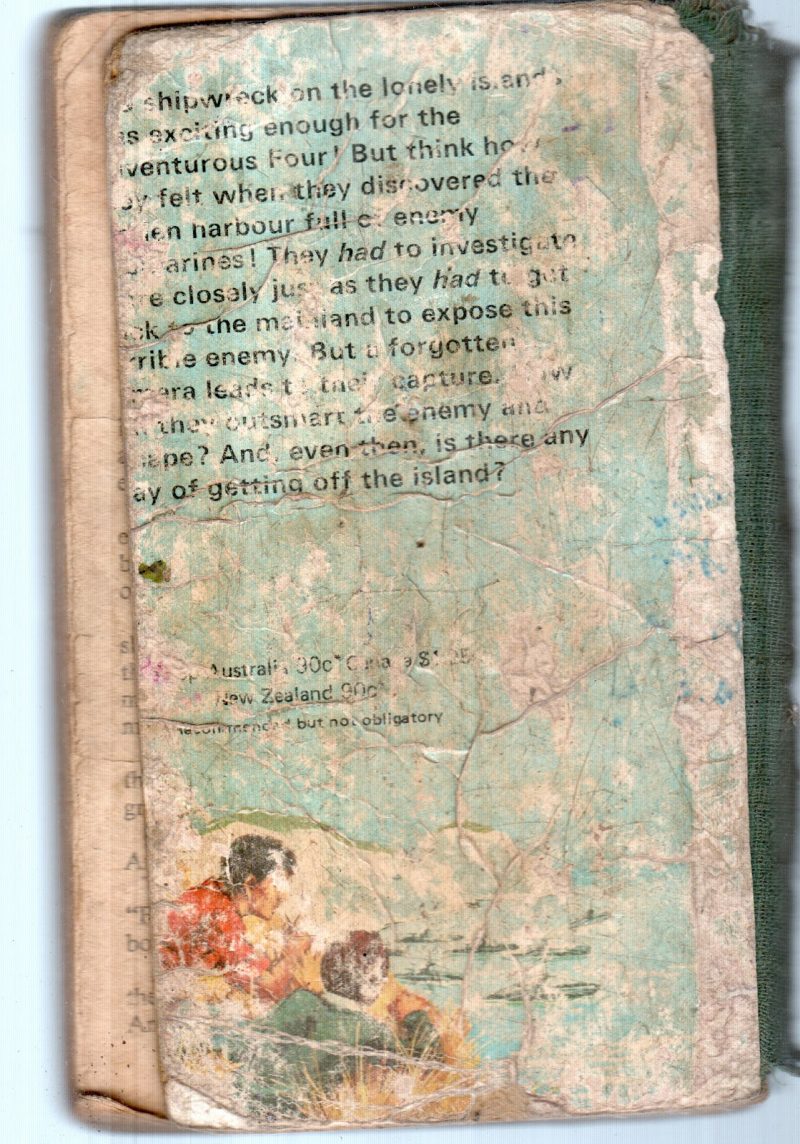 shipwreck on the lonely islands
as exciting enough for the
venturous Four! But think how
ey felt when they discovered the
den harbour full of enemy
marines! They had to investigate
re closely just as they had to get
ck to the mainland to expose this
rrible enemy. But a forgotten
mera leads to their capture. How
they outsmart the enemy and
cape? And, even then, is there any
ay of getting off the island?
Australia 90c* Canada
New Zealand 90c*
recommended but not obligatory